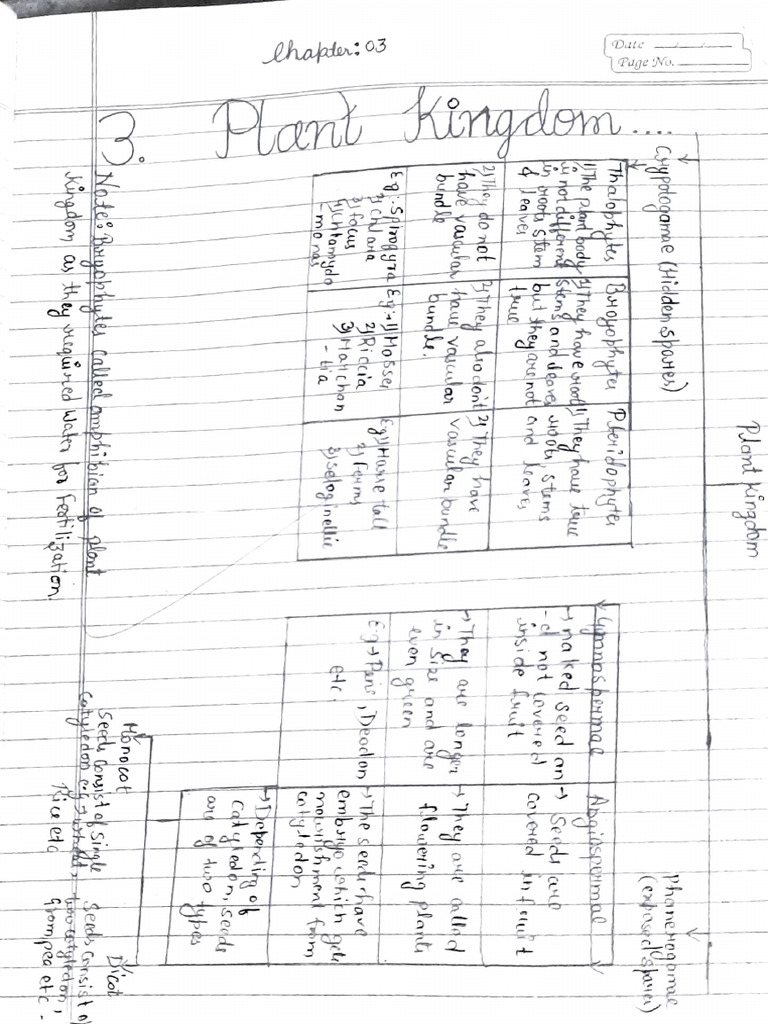 Chapter: 03
Date
Page No.
3. Plant Kingdom....
Plant Kingdom
Cryptogamae (Hidden spores)
Thalophytes
1) The plant body
is not different
in roots stem
& leaves
2) They do not
have vascular
bundle
Eg: Spirogyra
2) Chara
3) focus
4) Chlamydo
- monas
Bryophytes
1) They have root
stems and leaves
but they are not
true
2) They also don't
have vascular
bundle.
Eg:- 1) Mosses
2) Riccia
3) Marchan
- tia
Pteridophytes
1) They have true
roots, stems
and leaves
2) They have
vascular bundle
Eg 1) Horse tall
2) Ferns
3) Seloginellie
Note: Bryophytes called amphibian of plant
Kingdom as they required water for Fertilization.
phanerogamae
(exposed spores)
Gymnospermae
→ naked seed an
- d not covered
inside fruit
→ They are longer
in size and are
even green
Eg → Pine, Deodon
etc.
Angiospermal
→ Seeds are
covered in fruit
→ They are called
flowering plants
→ The seed have
embryo which gets
nourishment from
cotyledon
→ Depending of
cotyledon, seeds
are of two types
Monocot
Seeds consist of single
cotyledon eg → wheat,
Rice etc
Dicot
Seeds consist of
two cotyledon,
Grampea etc.